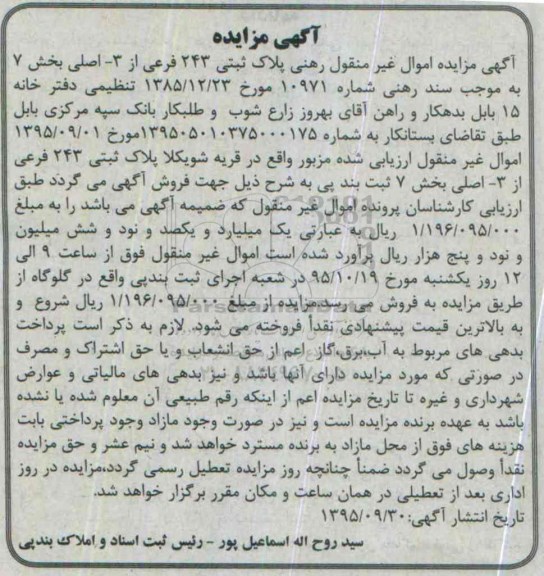 آگهی مزایده
آگهی مزایده اموال غیر منقول رهنی پلاک ثبتی ۲۴۳ فرعی از ۳- اصلی بخش ۷
به موجب سند رهنی شماره ۱۰۹۷۱ مورخ ۱۳۸۵/۱۲/۲۳ تنظیمی دفتر خانه
۱۵ بابل بدهکار و راهن آقای بهروز زارع شوب و طلبکار بانک سپه مرکزی بابل
طبق تقاضای بستانکار به شماره ۱۳۹۵۰۵۰۱۰۳۷۵۰۰۰۱۷۵مورخ ۱۳۹۵/۰۹/۰۱
اموال غیر منقول ارزیابی شده مزبور واقع در قریه شوبکلا پلاک ثبتی ۲۴۳ فرعی
از ۳- اصلی بخش ۷ ثبت بند پی به شرح ذیل جهت فروش آگهی می گردد طبق
ارزیابی کارشناسان پرونده اموال غیر منقول که ضمیمه آگهی می باشد را به مبلغ
۱/۱۹۶/۰۹۵/۰۰۰ ریال به عبارتی یک میلیارد و یکصد و نود و شش میلیون
و نود و پنج هزار ریال برآورد شده است اموال غیر منقول فوق از ساعت ۹ الی
۱۲ روز یکشنبه مورخ ۹۵/۱۰/۱۹ در شعبه اجرای ثبت بندپی واقع در گلوگاه از
طریق مزایده به فروش می رسد.مزایده از مبلغ ۱/۱۹۶/۰۹۵/۰۰۰ ریال شروع و
به بالاترین قیمت پیشنهادی نقداً فروخته می شود. لازم به ذکر است پرداخت
بدهی های مربوط به آب،برق،گاز اعم از حق انشعاب و یا حق اشتراک و مصرف
در صورتی که مورد مزایده دارای آنها باشد و نیز بدهی های مالیاتی و عوارض
شهرداری و غیره تا تاریخ مزایده اعم از اینکه رقم طبیعی آن معلوم شده یا نشده
باشد به عهده برنده مزایده است و نیز در صورت وجود مازاد وجود پرداختی بابت
هزینه های فوق از محل مازاد به برنده مسترد خواهد شد و نیم عشر و حق مزایده
نقداً وصول می گردد ضمناً چنانچه روز مزایده تعطیل رسمی گردد،مزایده در روز
اداری بعد از تعطیلی در همان ساعت و مکان مقرر برگزار خواهد شد.
تاریخ انتشار آگهی:۱۳۹۵/۰۹/۳۰
سید روح اله اسماعیل پور - رئیس ثبت اسناد و املاک بندپی